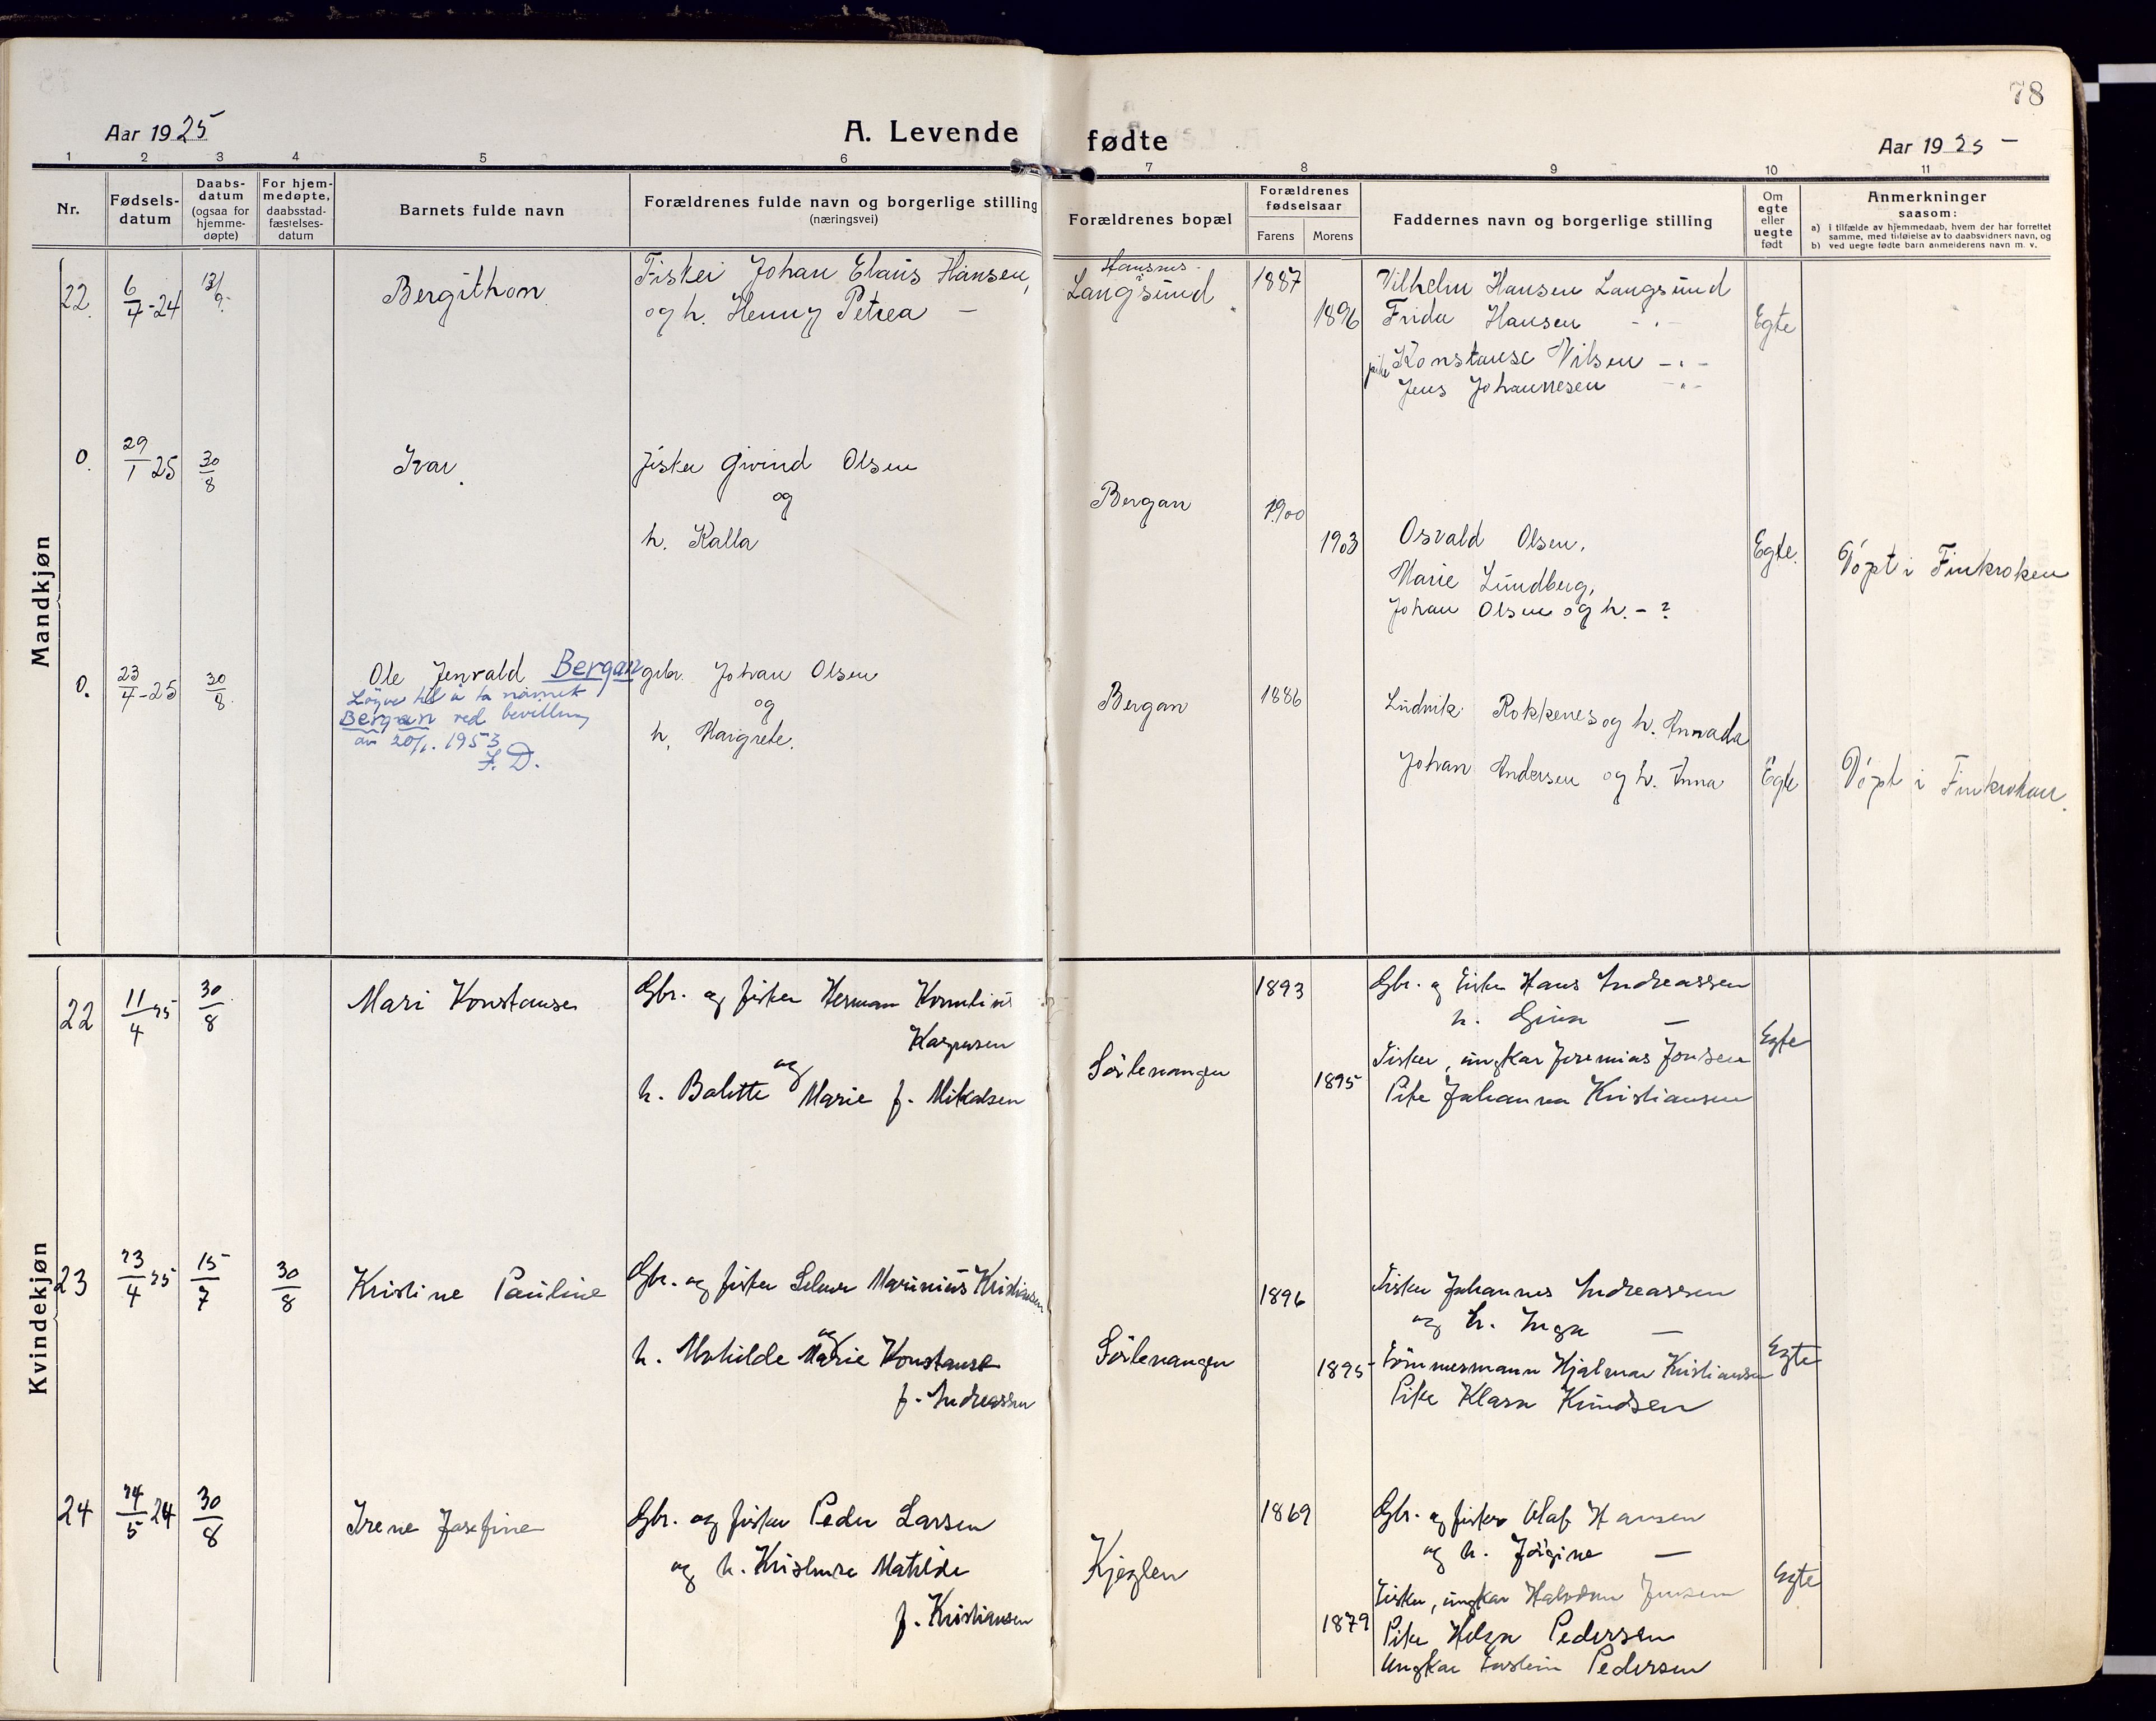 78
Aar 1925
A. Levende fødte
Aar 1925 -
1 2 3 4 5 6 7 8 9 10 11
Nr.
Fødsels-
datum
Daabs-
datum
(ogsaa for
hjemme-
døpte)
For hjem-
medøpte,
daabsstad-
fæstelses-
datum
Barnets fulde navn
Forældrenes fulde navn og borgerlige stilling
(næringsvei)
Forældrenes bopæl
Forældrenes
fødselsaar
Farens
Morens
Faddernes navn og borgerlige stilling
Om
egte
eller
uegte
født
Anmerkninger
saasom:
a) i tilfælde av hjemmedaab, hvem der har forrettet
samme, med tilføielse av to daabsvidners navn, og
b) ved uegte fødte barn anmelderens navn m. v.
Mandkjøn
22.
6/4-24
13/9-
Bergithon
Fisker Johan Elaus Hansen,
og h. Henny Petrea -
Hansnes
Langsund
1887
1896
Vilhelm Hansen Langsund
Frida Hansen - " -
pike Konstanse Nilsen - " -
Jens Johannesen - " -
Egte
0.
29/1 25
30/8
Ivar.
fisker Eivind Olsen
og
h. Kalla
Bergan
1900
1903
Osvald Olsen,
Marie Lundberg,
Johan Olsen og h. - ?
Egte.
Döpt i Finkroken
0.
23/4-25
30/8
Ole Jenvald Bergan
Löyve til å ta namnet
Bergan ved bevilling
av 20/1. 1953
F. D.
gbr. Johan Olsen
og
h. Margrete.
Bergan
1886
Ludvik Rokkenes og h. Annada
Johan Andersen og h. Anna
Egte
Döpt i Finkroken.
Kvindekjøn
22
11/4 25
30/8
Mari Konstanse
Gbr. og fisker Herman Kornelius
Kaspersen
og
h. Balette Marie f. Mikalsen
Sörlenangen
1893
1895
Gbr. og Fisker Hans Andreassen
h. Gina -
Fisker, ungkar Jeremias Jonsen
Pike Johanna Kristiansen
Egte
23
23/4 25
15/7
30/8
Kristine Pauline
Gbr. og fisker Selmer Marinius Kristiansen
og
h. Mathilde Marie Konstanse
f. Andreassen
Sörlenangen
1896
1895
Fisker Johannes Andreassen
og h. Inga -
Tömmermann Hjalmar Kristiansen
Pike Klara Knudsen
Egte
24
24/5 24
30/8
Irene Josefine
Gbr. og fisker Peder Larsen
og h. Kristense Matilde
f. Kristiansen
Kjeglen
1869
1879
Gbr. og fisker Olaf Hansen
og h. Jörgine -
Fisker, ungkar Halvdan Jensen
Pike Helga Pedersen
Ungkar Torstein Pedersen
Egte